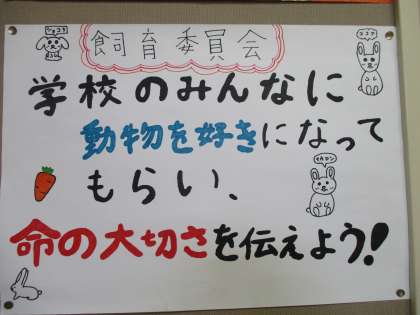 飼育委員会
ココア
学校のみんなに
動物を好きになって
もらい、
命の大切さを伝えよう!